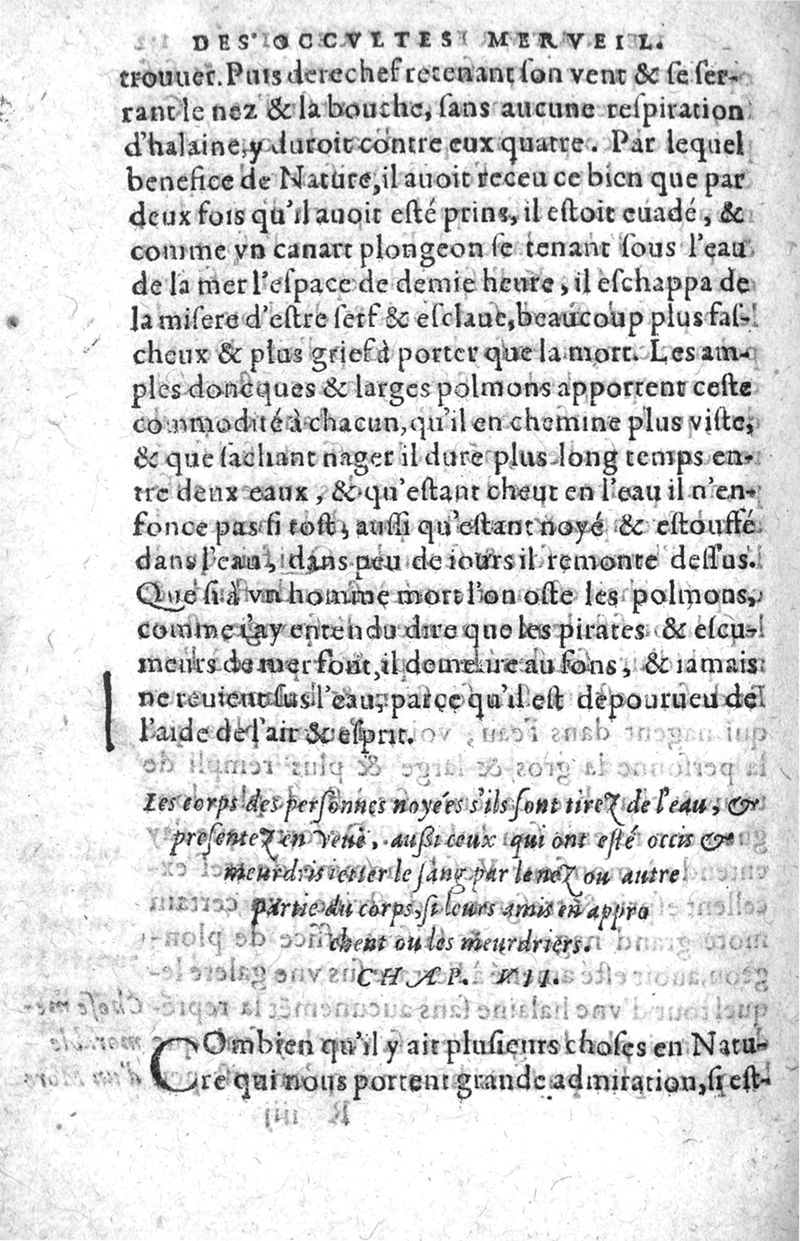 DES OCCVLTES MERVEIL.
trouuer. Puis derechef retenant ſon vent & ſe ſer-
rant le nez & la bouche, ſans aucune reſpiration
d'halaine, y duroit contre eux quatre. Par lequel
benefice de Nature, il auoit receu ce bien que par
deux fois qu'il auoit eſté prins, il eſtoit euadé, &
comme vn canart plongeon ſe tenant ſous l'eau
de la mer l'eſpace de demie heure, il eſchappa de
la miſere d'eſtre ſerf & eſclaue, beaucoup plus faſ-
cheux & plus grief à porter que la mort. Les am-
ples doncques & larges polmons apportent ceſte
commodité à chacun, qu'il en chemine plus viſte,
& que ſachant nager il dure plus long temps en-
tre deux eaux, & qu'eſtant cheut en l'eau il n'en-
fonce pas ſi toſt, auſſi qu'eſtant noyé & eſtouffé
dans l'eau, dans peu de iours il remonte deſſus.
Que ſi à vn homme mort l'on oſte les polmons,
comme i'ay entendu dire que les pirates & eſcu-
meurs de mer font, il demeure au fons, & iamais
ne reuient ſus l'eau, parce qu'il eſt depourueu de
l'aide de l'air & eſprit.
Les corps des perſonnes noyées s'ils ſont tirez de l'eau, &
preſentez en veuë, auſſi ceux qui ont eſté occis &
meurdris ietter le ſang par le nez ou autre
partie du corps, ſi leurs amis en appro
chent ou les meurdriers.
CHAP. VII.
COmbien qu'il y ait pluſieurs choſes en Natu-
re qui nous portent grande admiration, ſi eſt-